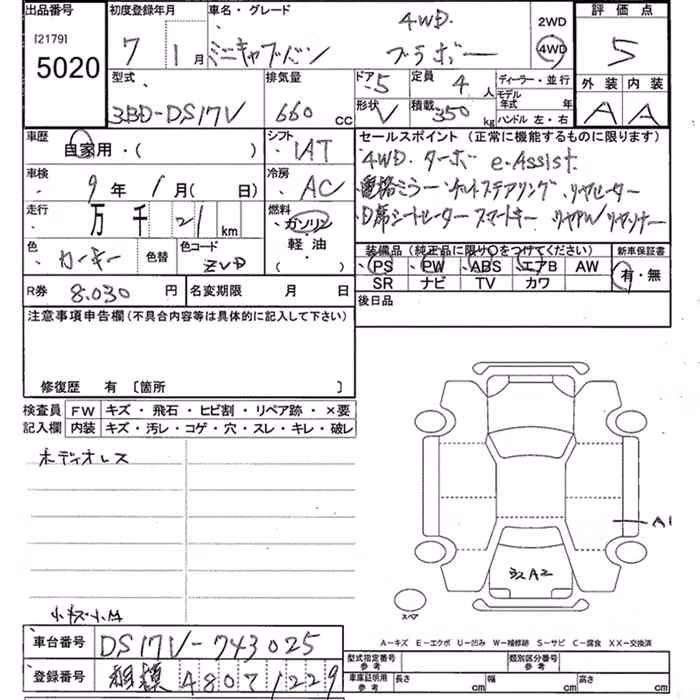 出品番号 初度登録年月 車名・グレード 評価点
[2179] 5020 7 1月 ミニキャブバン 4WD. ブラボー 2WD 4WD 5
型式 3BD-DS17V 排気量 660 CC ドア 5 定員 4人 ディーラー・並行 外装 内装
形状 V 積載 350 kg モデル年式 年 ハンドル 左・右 A A
車歴 自家用・( ) シフト IAT セールスポイント(正常に機能するものに限ります)
車検 9年 1月( 日) 冷房 AC 4WD. ターボ e-Assist.
電格ミラー ステアリング リヤヒーター
走行 万 千 21 km 燃料 ガソリン 軽油 ( ) D席シートヒーター スマートキー リヤPW リヤソナー
色 カーキー 色替 色コード 装備品(純正品に限り○をつけてください) 新車保証書
PS PW ABS エアB AW 有・無
R券 8.030 円 名変期限 月 日 SR ナビ TV カワ
注意事項申告欄(不具合内容等は具体的に記入して下さい) 後日品
修復歴 有 〔箇所 〕
検査員 FW キズ・飛石・ヒビ割・リペア跡・×要
記入欄 内装 キズ・汚レ・コゲ・穴・スレ・キレ・破レ
ボディオレス
A1
A2
スペア
小キズ小凹
A-キズ E-エクボ U-凹み W-補修跡 S-サビ C-腐食 XX-交換済
車台番号 DS17V-743025
型式指定番号 参考 類別区分番号 参考
登録番号 相模 480 1229
車庫証明用 参考 長さ cm 幅 cm 高さ cm